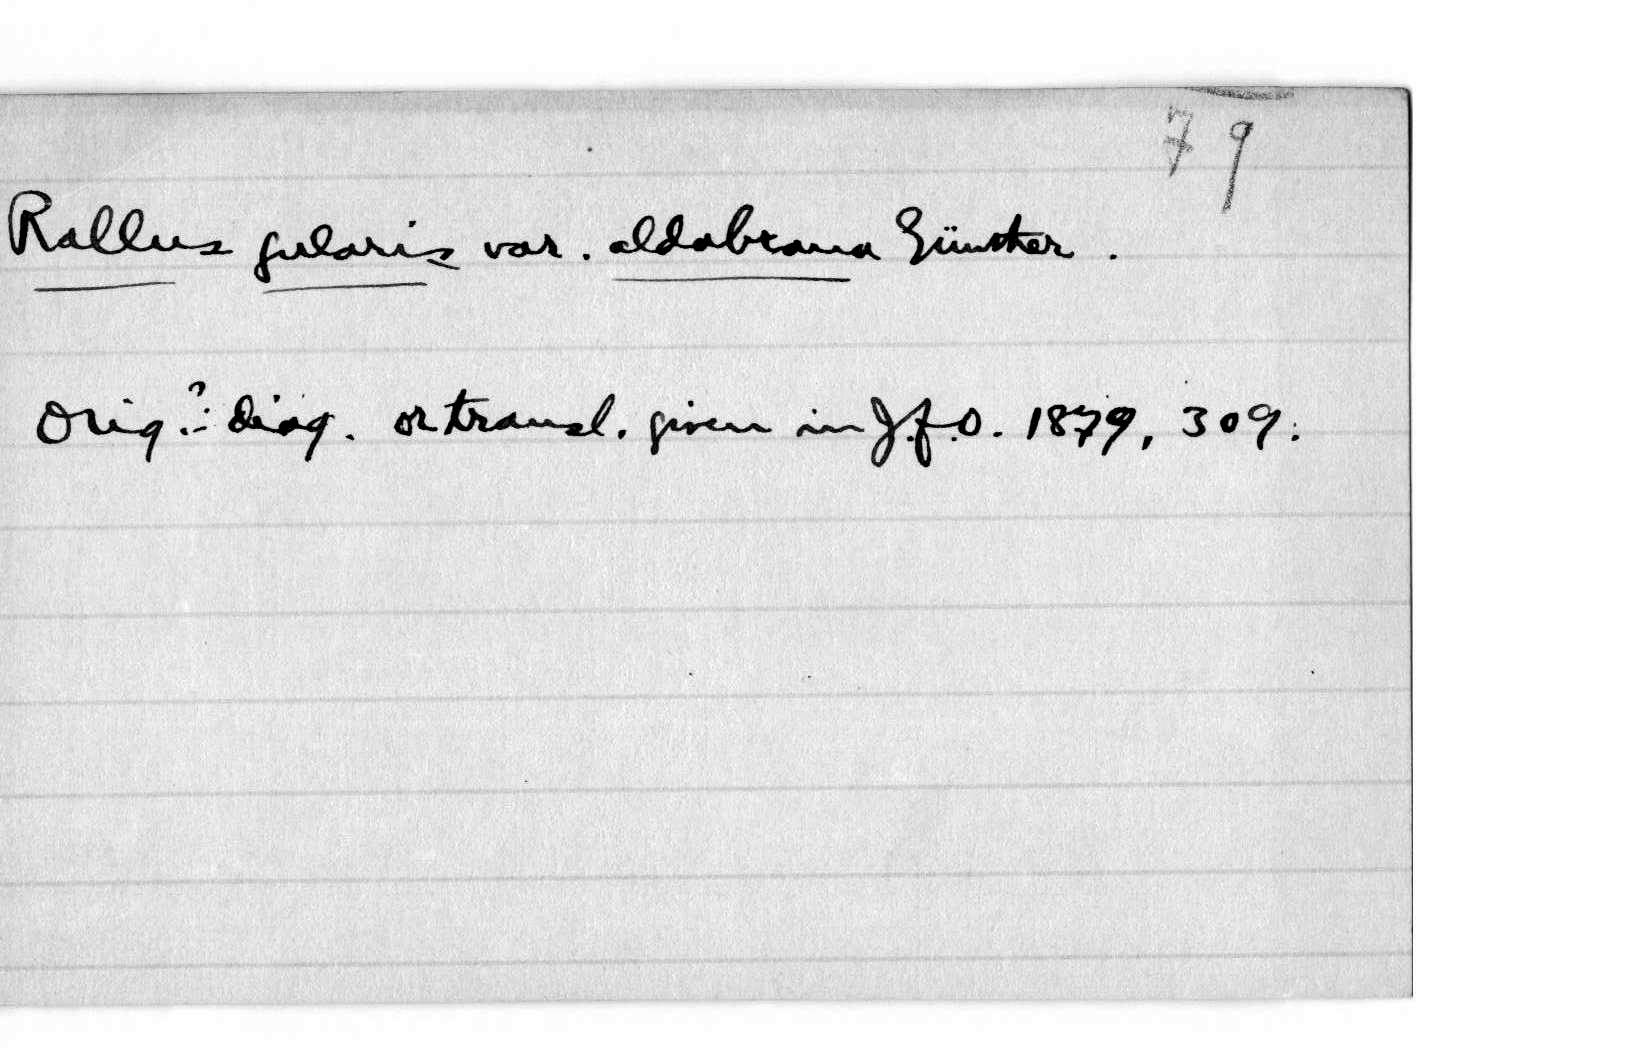 79
Rallus gularis var. aldabrana Günther.
Orig.?: diag. or transl. given in J.f.O. 1879, 309.